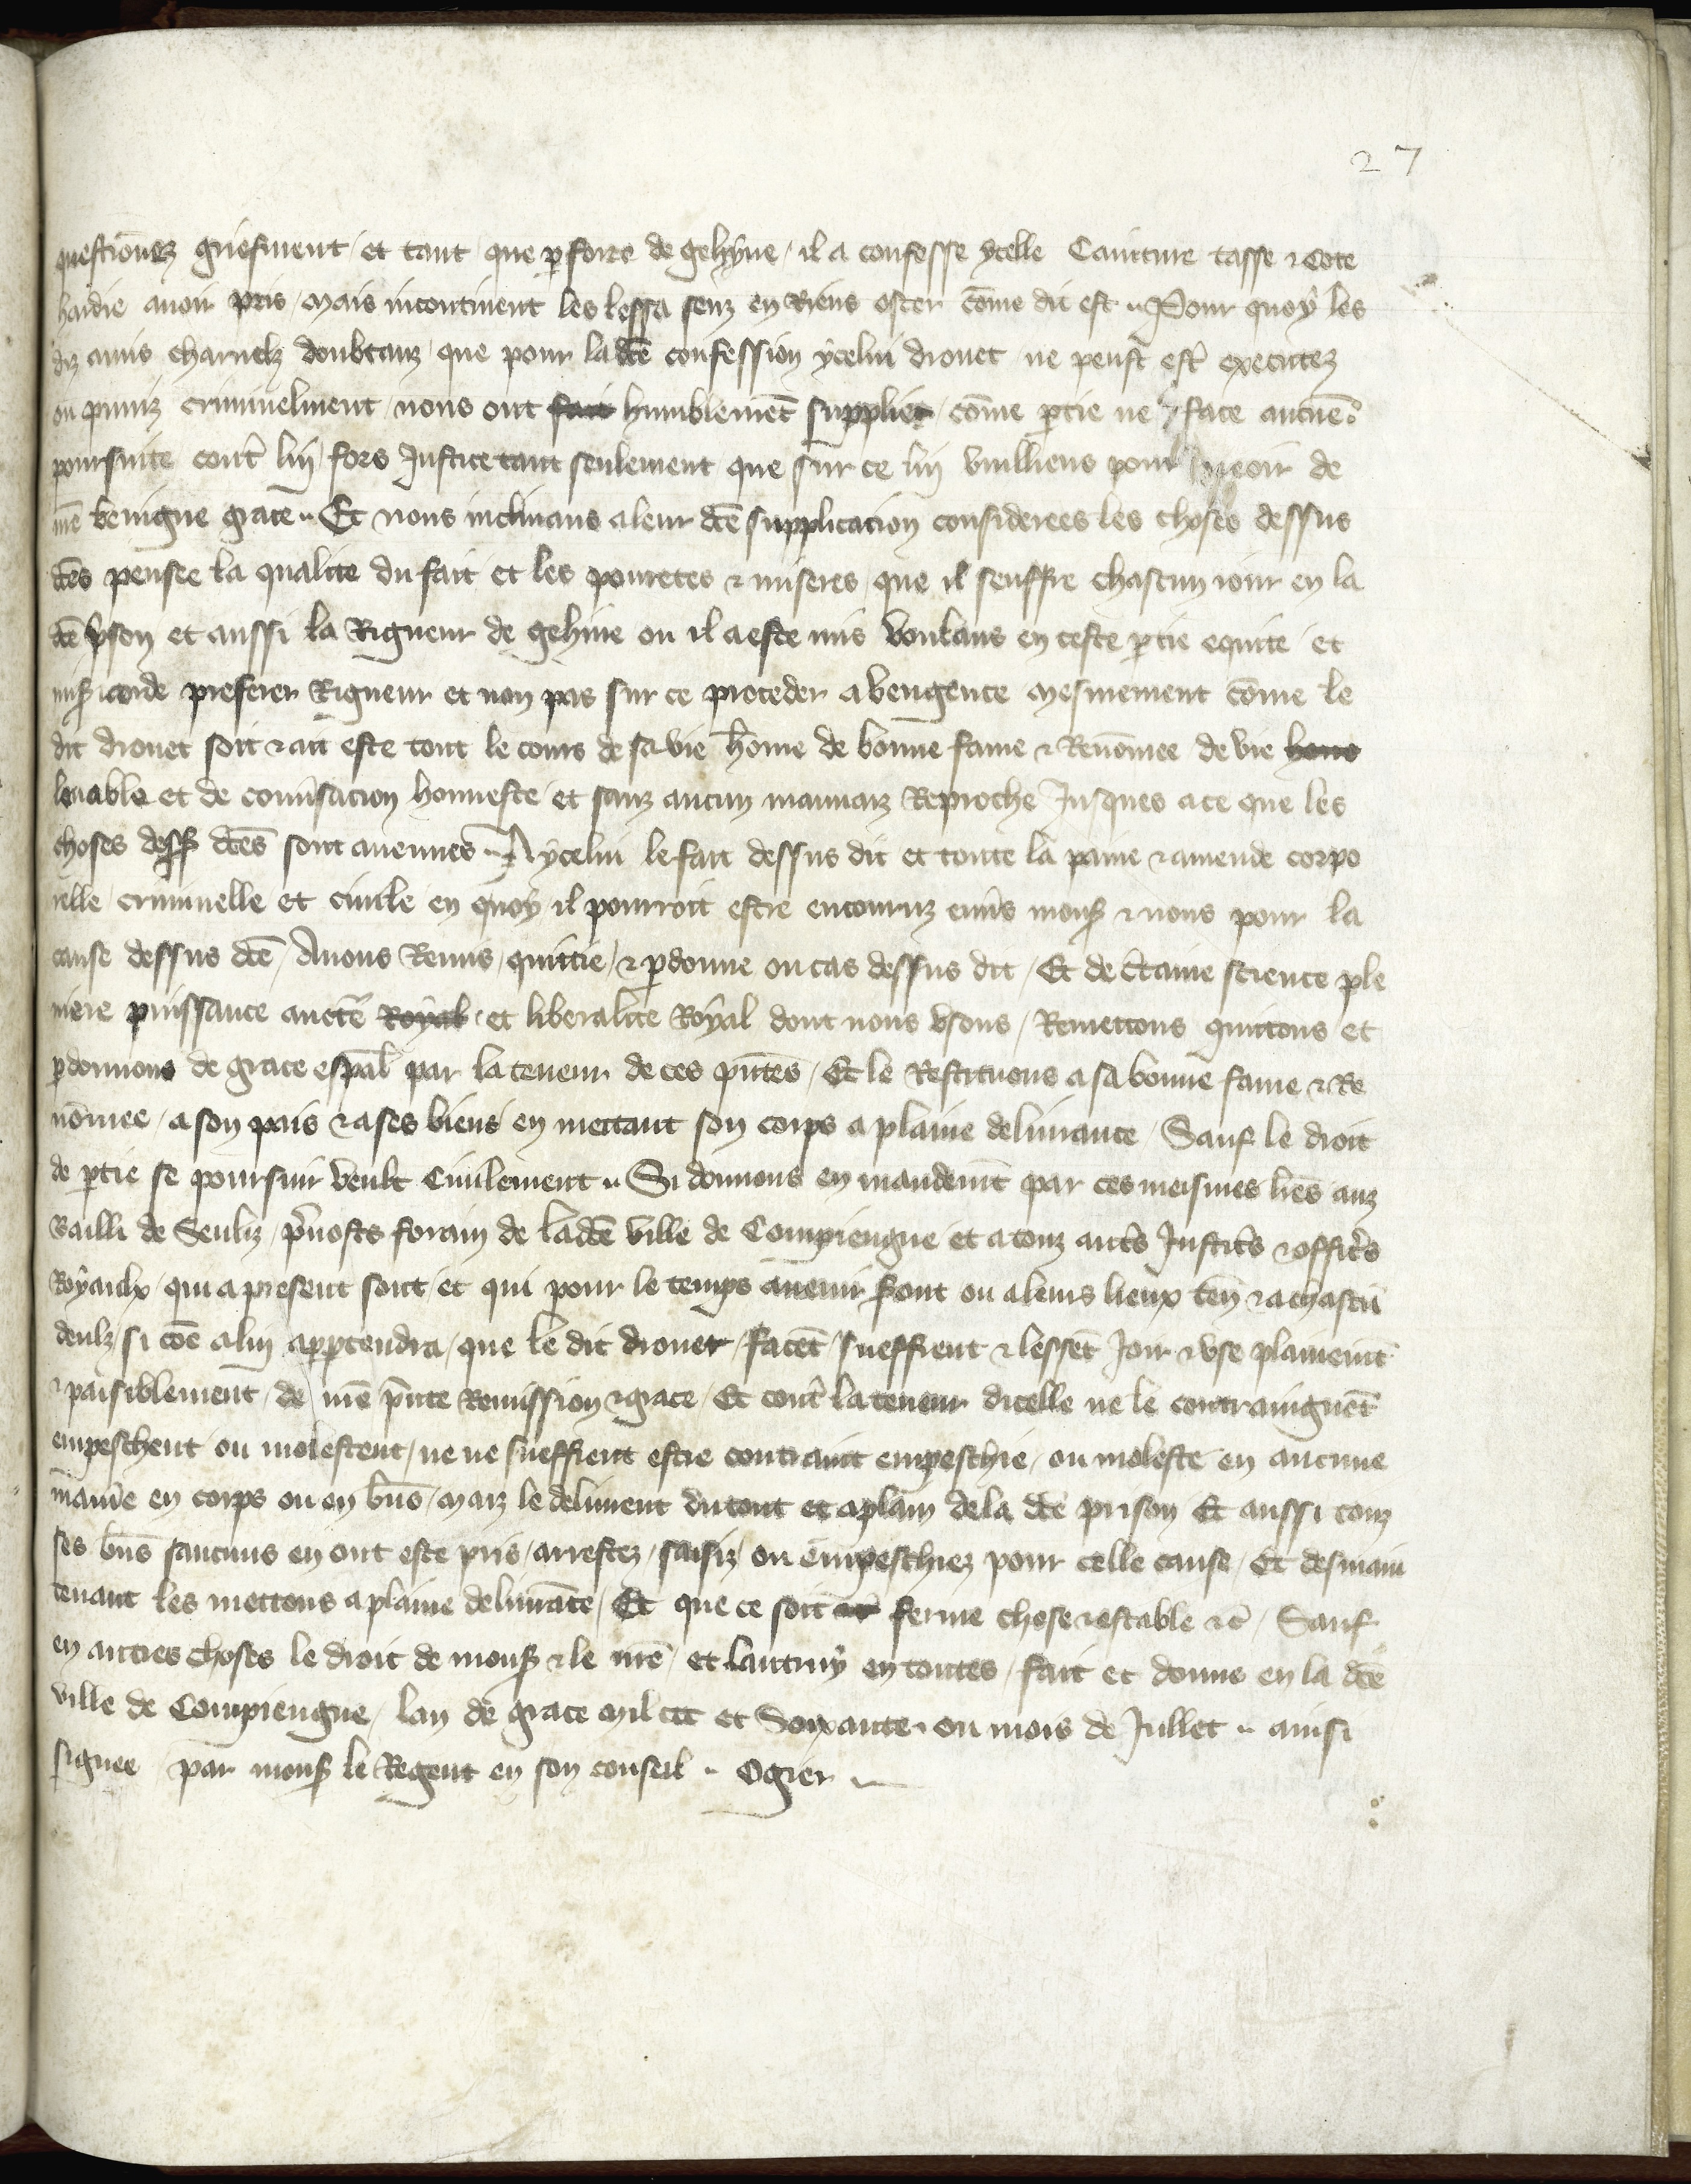 27
questionez griefment et tant que p force de gehyne il a confesse ycelle Cainture tasse & Cote
hardie avoir pris mais incontinent les lessa senz en Riens oster cōme dit est Pour quoy les
diz amis charnelz doubtanz que pour la dcē confession ycelui drouet ne peust est' executez
ou puniz criminelment nous ont fait humblemēt supplier cōme ptie ne face aucūe
poursuite cont' lui fors Justice tant seulement que sur ce lui vuilliens pourveoir de
nrē benigne grace Et nous inclinans a leur dcē supplicacion considerees les choses dessus
dcēs pensee la qualite du fait et les povretes & miseres que il seuffre chascun jour en la
dcē pson et aussi la Rigueur de gehine ou il a este mis voulans en ceste ptie equite et
misicorde preferer Rigueur et non pas sur ce proceder a vengence mesmement cōme le
dit drouet soit & ait este tout le cours de sa vie hōme de bonne fame & Renōmee de vie hono
louable et de convsacion honneste et sanz aucun mauvaiz Reproche Jusques a ce que les
choses dess dcēs sont avenues A ycelui le fait dessus dit et toute la paine & amende corpo
relle criminelle et civile en quoy il pourroit estre encouruz envs mons & nous pour la
cause dessus dcē Avons Remis quittie & pdonne ou cas dessus dit Et de ctaine science ple
niere puissance auctē Royal et liberalite Royal dont nous usons Remettons quittons et
pdonnons de grace espāl par la teneur de ces pntēs Et le Restituons a sa bonne fame & Re
nōmee a son pais & a ses biens en mettant son corps a plaine delivrance Sauf le droit
de ptie se poursuir veult Civilement Si donnons en mandemt par ces meismes lrēs aux
Bailli de Senliz pvosts forain de la dcē ville de Compiengne et a touz autrs Justicrs & officrs
Royaulx qui a present sont et qui pour le temps avenir sront ou a leurs lieux ten & a chascū
deulz si cōe a lui appartendra que le dit drouet facēt sueffrent & lessēt Joir & use plainemt
& paisiblement de nrē pnte Remission & grace Et cont' la teneur dicelle ne le contraingnēt
empeschent ou molestent ne ne sueffrent estre contraint empeschie ou moleste en aucune
maniē en corps ou en bnēs maiz le delivrent du tout et a plain de la dcē prison Et aussi touz
ses bnēs saucuns en ont este pris arrestez saisiz ou empeschiez pour celle cause Et desmain
tenant les mettons a plaine delivrāce Et que ce soit ferme chose & estable &c Sauf
en autres choses le droit de mons & le nrē et lautruy en toutes fait et donne en la dcē
ville de Compiengne lan de grace mil ccc et Soixante ou mois de Juillet ainsi
signee par mons le Regent en son conseil Ogier